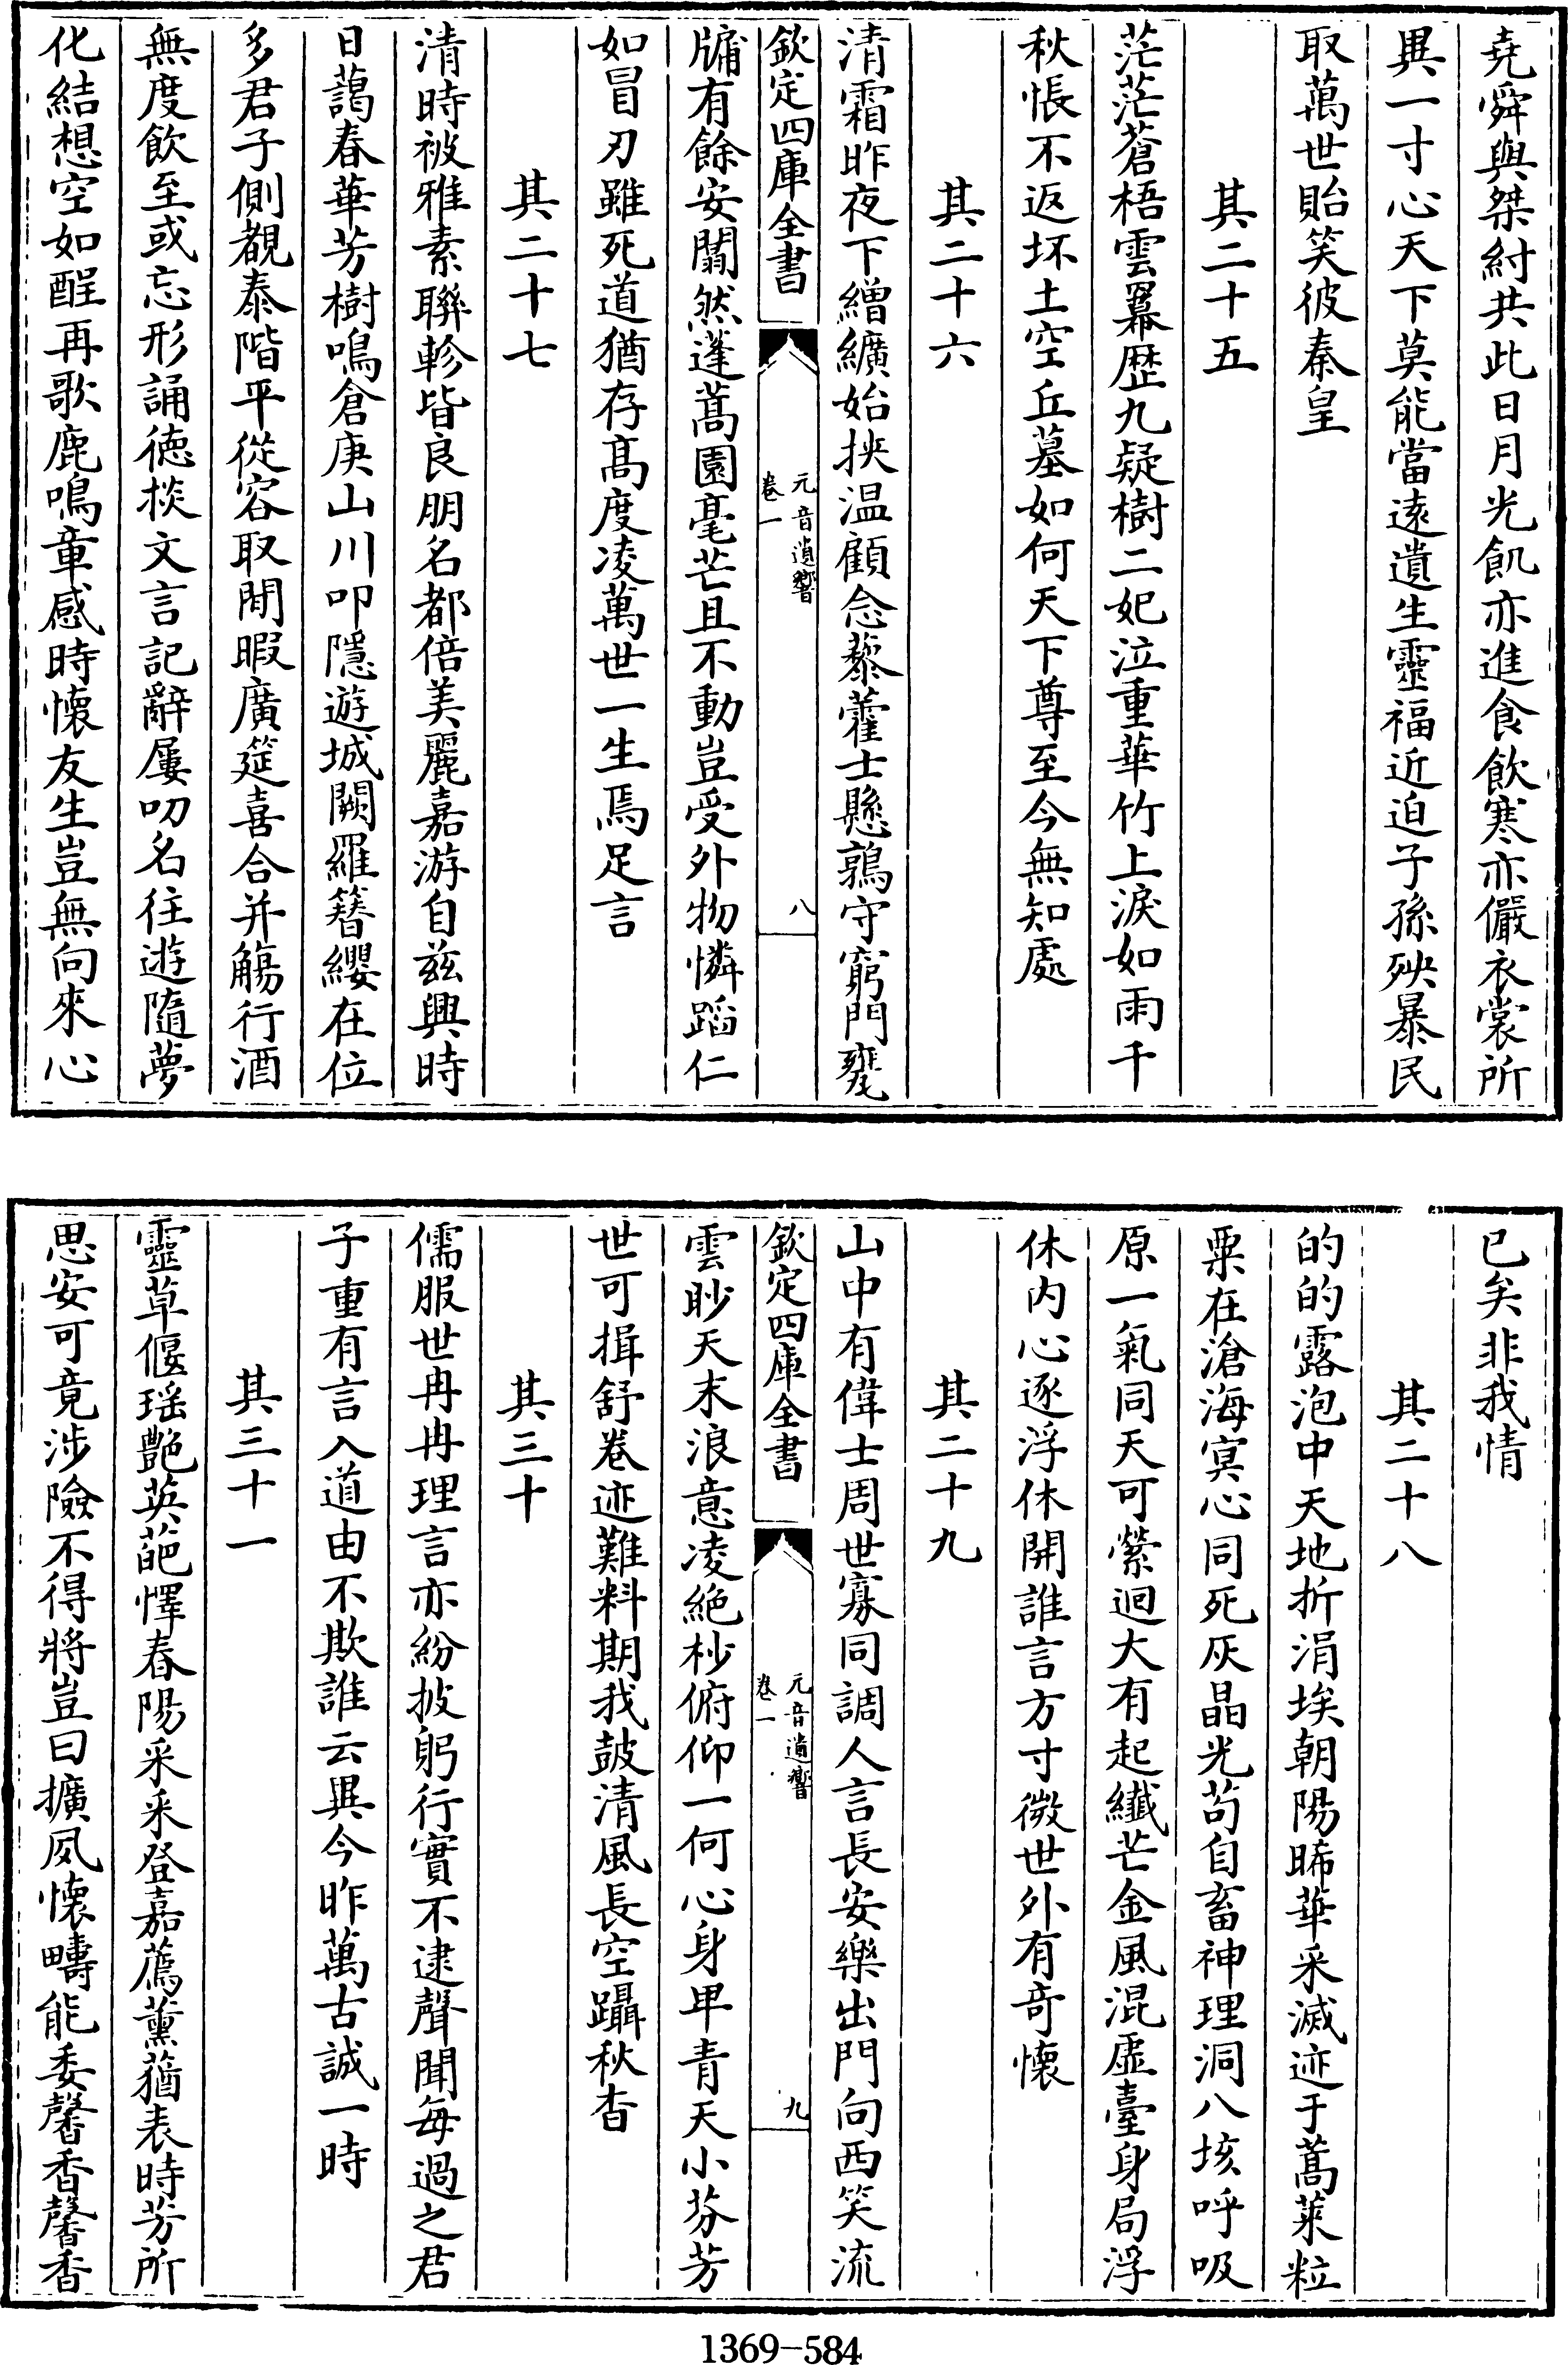 堯舜與桀紂共此日月光飢亦進食飲寒亦儼衣裳所
異一寸心天下莫能當遠遺生靈福近迫子孫殃暴民
取萬世貽笑彼秦皇
其二十五
茫茫蒼梧雲羃歴九疑樹二妃泣重華竹上淚如雨千
秋悵不返坏土空丘墓如何天下尊至今無知處
其二十六
清霜昨夜下繒纊始挾温顧念藜藿士懸鶉守窮門甕
欽定四庫全書
元音遺響
卷一
八
牖有餘安闔然蓬蒿園毫芒且不動豈受外物憐蹈仁
如冒刃雖死道猶存高度凌萬世一生焉足言
其二十七
清時被雅素聯軫皆良朋名都倍美麗嘉游自兹興時
日藹春華芳樹鳴倉庚山川叩隱遊城闕羅簪纓在位
多君子側覩泰階平從容取閒暇廣筵喜合并觴行酒
無度飲至或忘形誦徳掞文言記辭屢叨名往遊隨夢
化結想空如酲再歌鹿鳴章感時懷友生豈無向來心
已矣非我情
其二十八
的的露泡中天地折涓埃朝陽晞華采滅迹于蒿萊粒
粟在滄海㝠心同死灰晶光苟自畜神理洞八垓呼吸
原一氣同天可縈迴大有起纖芒金風混虛臺身局浮
休内心逐浮休開誰言方寸微世外有奇懷
其二十九
山中有偉士周世寡同調人言長安樂出門向西笑流
欽定四庫全書
元音遺響
卷一
九
雲眇天末浪意凌絶杪俯仰一何心身甲青天小芬芳
世可揖舒卷迹難料期我鼓清風長空躡秋杳
其三十
儒服世冉冉理言亦紛披躬行實不逮聲聞每過之君
子重有言入道由不欺誰云異今昨萬古誠一時
其三十一
靈草偃瑶艶英葩懌春陽采采登嘉薦薰蕕表時芳所
思安可竟涉險不得將豈曰擴夙懷疇能委馨香馨香
1369-584